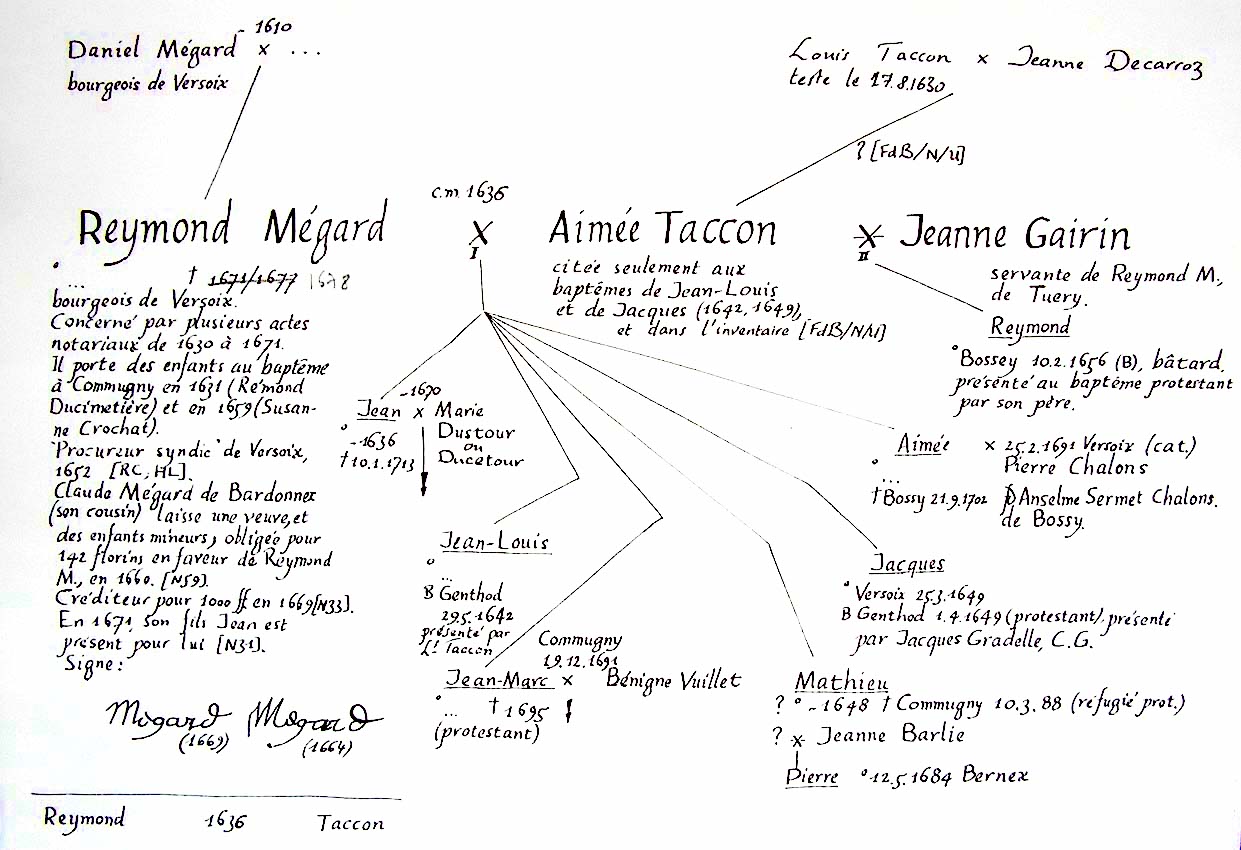 ~ 1610
Daniel Mégard x ...
bourgeois de Versoix
Louis Taccon x Jeanne Decarroz
teste le 17.8.1630
? [FdB/N/U]
c.m. 1636
Reymond Mégard X Aimée Taccon X Jeanne Gairin
I
II
° ... † 1671/1677 1678
bourgeois de Versoix.
Concerné par plusieurs actes
notariaux de 1630 à 1671.
Il porte des enfants au baptême
à Commugny en 1631 (Rémond
Ducimetière) et en 1659 (Susan-
ne Crochat).
Procureur syndic de Versoix,
1652 [RC, HL].
Claude Mégard de Bardonnex
(son cousin) laisse une veuve, et
des enfants mineurs, obligée pour
142 florins en faveur de Reymond
M., en 1660. [N59].
Créditeur pour 1000 ff en 1669 [N33].
En 1671, son fils Jean est
présent pour lui [N31].
Signe:
Mégard Mégard
(1669) (1664)
citée seulement aux
baptêmes de Jean-Louis
et de Jacques (1642, 1649),
et dans l'inventaire [FdB/N/U]
servante de Reymond M.,
de Tuery.
Reymond
° Bossey 10.2.1656 (B), bâtard,
présenté au baptême protestant
par son père.
~1670
Jean x Marie
Dustour
ou
Ducetour
° ~1636
† 10.1.1713
Jean-Louis
°
...
B Genthod
29.5.1642
présenté par
Ls Taccon
Commugny
19.12.1691
Jean-Marc x Bénigne Vuillet
° ... † 1695
(protestant)
Aimée x 25.2.1691 Versoix (cat.)
° Pierre Chalons
...
† Bossy 21.9.1702 Anselme Sermet Chalons,
de Bossy.
Jacques
° Versoix 25.3.1649
B Genthod 1.4.1649 (protestant), présenté
par Jacques Gradelle, C.G.
Mathieu
? ° ~1648 † Commugny 10.3.88 (réfugié prot.)
? x Jeanne Barlie
Pierre ° 12.5.1684 Bernex
Reymond 1636 Taccon